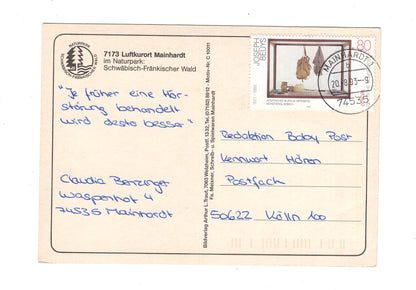 7173 Luftkurort Mainhardt
im Naturpark:
Schwäbisch-Fränkischer Wald
"Je früher eine Hör-
störung behandelt
wird desto besser"
Claudia Berzinger
Waspenhof 4
74535 Mainhardt
Bildverlag Arthur F. Traut, 7063 Welzheim, Postf. 1332, Tel. (07182) 8912 - Motiv-Nr. C 10011
Fa. Meixner, Schreib- u. Spielwaren Mainhardt
JOSEPH
BEUYS
80
MAINHARDT
74535
Redaktion Baby Post
Kennwort Hören
Postfach
50622 Köln 100